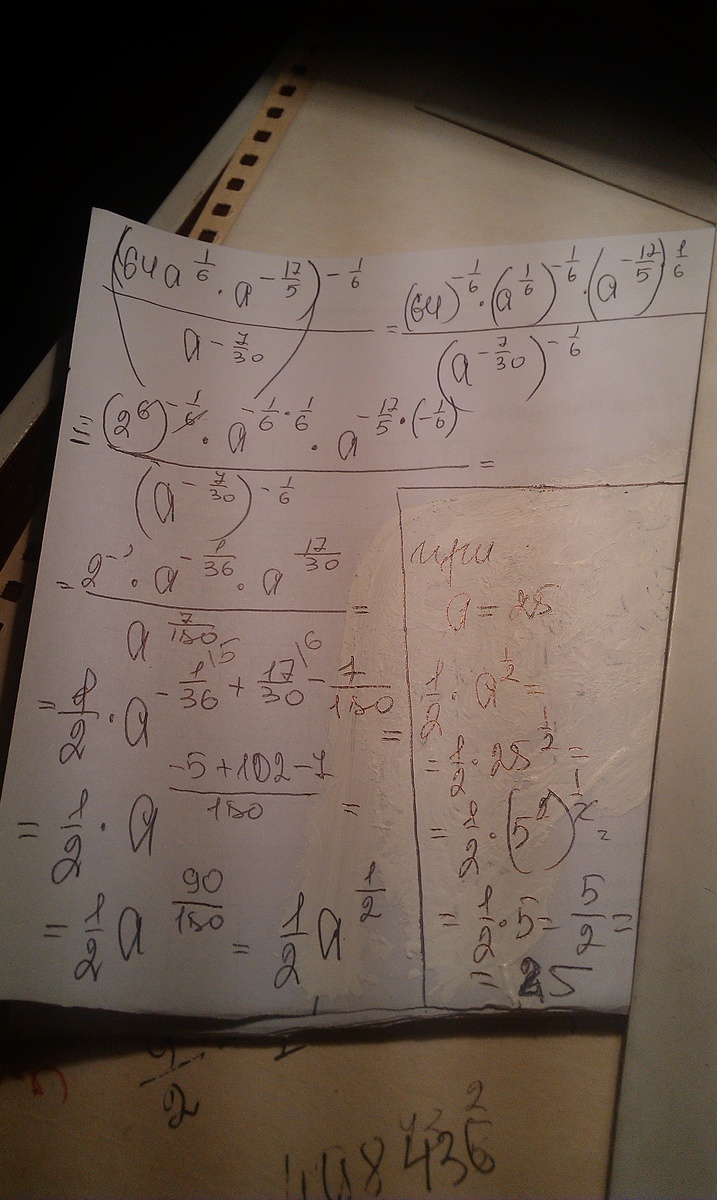 (64a^{1/6} · a^{-17/5})^{-1/6} / a^{-7/30} = (64)^{-1/6} · (a^{1/6})^{-1/6} · (a^{-17/5})^{1/6} / (a^{-7/30})^{-1/6}
= (2^6)^{-1/6} · a^{-1/6 · 1/6} · a^{-17/5 · (-1/6)} / (a^{-7/30})^{-1/6} =
= 2^{-1} · a^{-1/36} · a^{17/30} / a^{7/180} =
= 1/2 · a^{-1/36 \5 + 17/30 \6 - 7/180} =
= 1/2 · a^{(-5+102-7)/180} =
= 1/2 a^{90/180} = 1/2 a^{1/2}
при
a = 25
1/2 · a^{1/2} =
= 1/2 · 25^{1/2} =
= 1/2 · (5^2)^{1/2} =
= 1/2 · 5 = 5/2 =
= 25
2
436